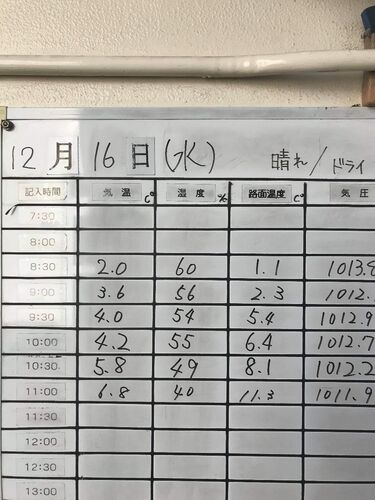 12月16日(水) 晴れ/ドライ
記入時間 気温 C° 湿度 % 路面温度 C° 気圧
7:30
8:00
8:30 2.0 60 1.1 1013.8
9:00 3.6 56 2.3 1012.
9:30 4.0 54 5.4 1012.9
10:00 4.2 55 6.4 1012.7
10:30 5.8 49 8.1 1012.2
11:00 6.8 40 11.3 1011.9
11:30
12:00
12:30
13:00